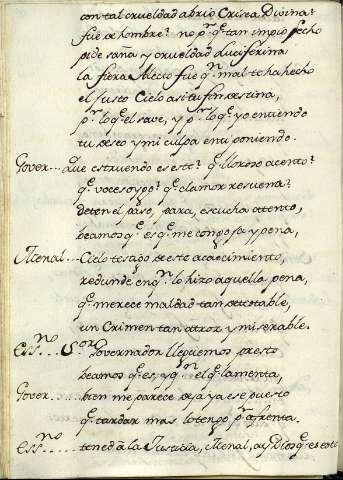 con tal crueldad abrio Crisea Divina?
fue de hombre? no pr. q. tan impio pecho
pide saña y crueldad Luciferina
la fiera Alecto fue qn. mal te ha hecho
el Justo Cielo asi tu fin destina,
pr. lo q. el save, y pr. lo q. yo entiendo
tu deseo y mi culpa enti poniendo.
Gover... que estruendo es este? q. lloroso acento?
q. voces oygo? q. clamor resuena?
deten el paso, para, escucha attento,
beamos q. es q. me congoja y pena,
Menal... Cielo testigo de este acaecimiento,
redunde en qn. lo hizo aquella pena,
q. merece maldad tan detestable,
un Crimen tan atroz y miserable.
Essno... Sor. Governador lleguemos presto
beamos q. es, y qn. el q. lamenta,
Gover... bien me parece de ya ese puesto
q. tardar mas lo tengo pr. afrenta.
Essno... tened à la Justicia, Menal, ay Dios q. es esto